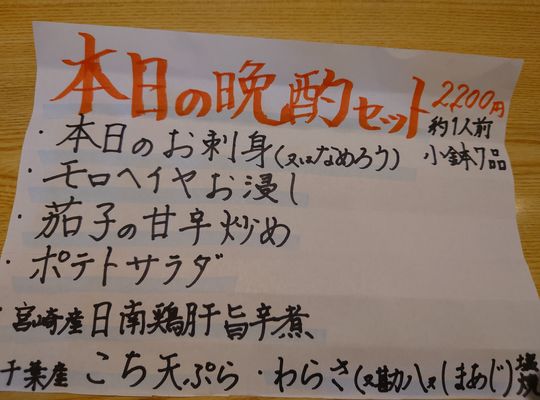 本日の晩酌セット 2,200円
約1人前
小鉢7品
・本日のお刺身(又はなめろう)
・モロヘイヤお浸し
・茄子の甘辛炒め
・ポテトサラダ
・宮崎産 日南鶏肝旨辛煮
千葉産 こち天ぷら・わらさ(又勘八又しまあじ)塩焼